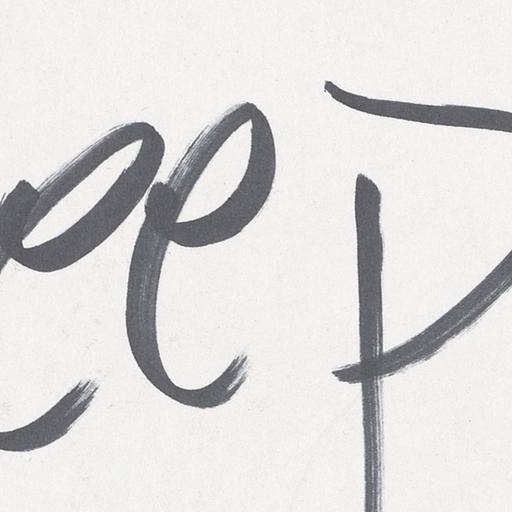 ee P